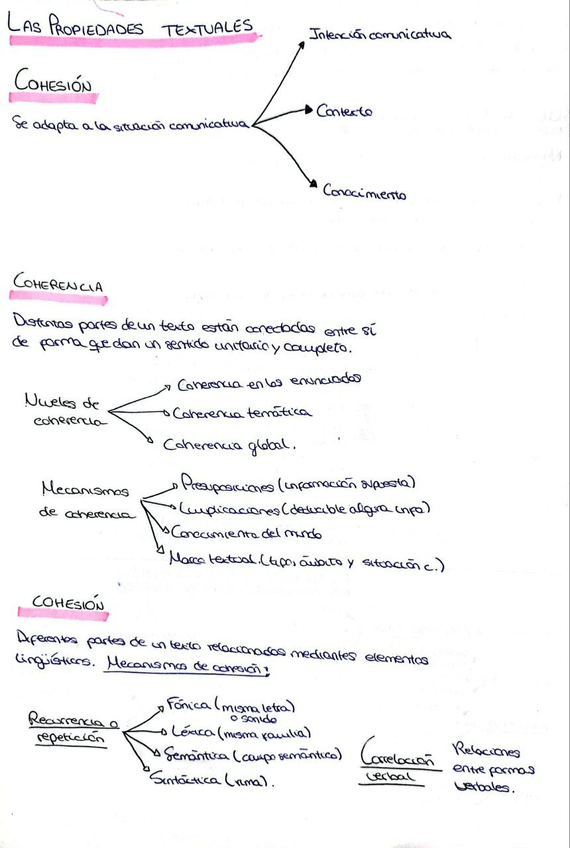 LAS PROPIEDADES TEXTUALES
Intención comunicativa
COHESIÓN
Contexto
Se adapta a la situación comunicativa
Conocimiento
COHERENCIA
Distintas partes de un texto están conectadas entre sí
de forma que dan un sentido unitario y completo.
Niveles de
coherencia
Coherencia en los enunciados
Coherencia temática
Coherencia global.
Mecanismos
de coherencia
Presuposiciones (información supuesta)
Implicaciones (deducible alguna info)
Conocimiento del mundo
Marco textual. (tipo, ámbito y situación c.)
COHESIÓN
Diferentes partes de un texto relacionados mediantes elementos
lingüísticos. Mecanismos de cohesión:
Recurrencia o
repetición
Fónica (misma letra)
o sonido
Léxica (misma familia)
Semántica (campo semántico)
Sintáctica (rima).
Correlación
verbal
Relaciones
entre formas
verbales.